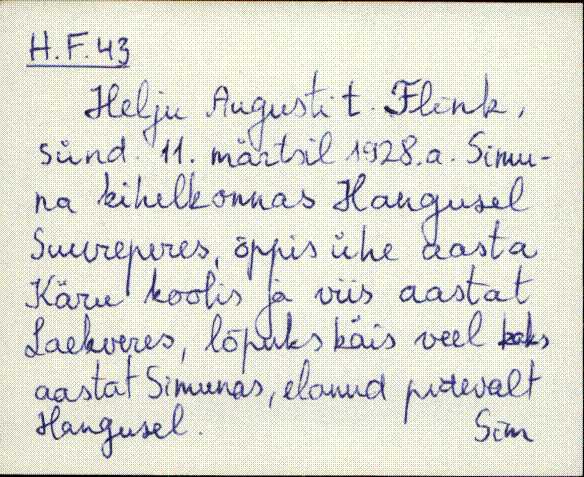 H.F.43
Helju Augusti t. Flink,
sünd. 11. märtsil 1928.a. Simu-
na kihelkonnas Hangusel
Suureperes, õppis ühe aasta
Käru koolis ja viis aastat
Laekveres, lõpuks käis veel kaks
aastat Simunas, elanud pidevalt
Hangusel.
Sim